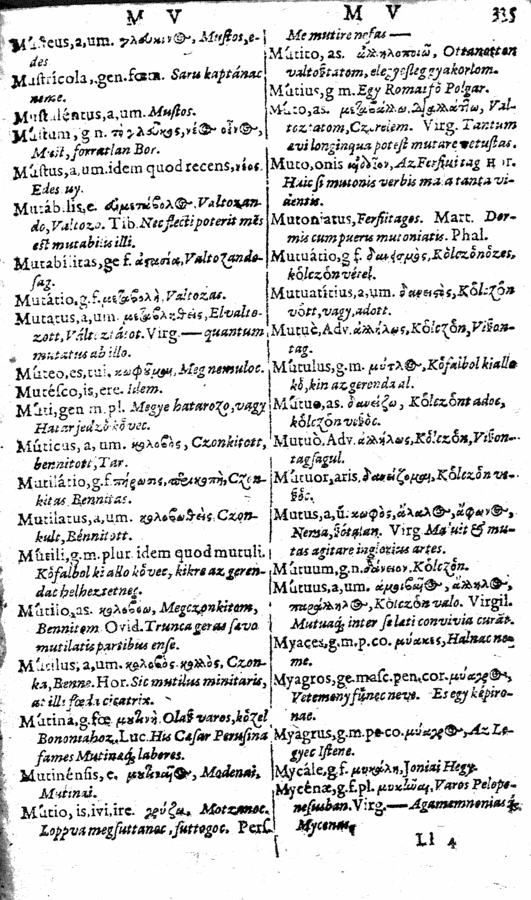 M V
M V 335
Músteus, a, um. γλευκιν, Mustos, e-
des
Mustrícola, gen. fœm. Saru kaptánac
neme.
Mustuléntus, a, um. Mustos.
Mústum, g n. τὸ γλεῦκος, νέος οἶνος,
Must, forratlan Bor.
Mústus, a, um. idem quod recens, νέος.
Edes uy.
Mutáb lis, e. Valtozan-
do, Valtozo. Tib. Nec flecti poterit mẽs
est mutabilis illi.
Mutabílitas, ge f. Valtozando-
sag.
Mutátio, g. f. μεταβολὴ, Valtozas.
Mutatus, a, um. Elvalto-
zott, Valtoztatot. Virg. — quantum
mutatus ab illo.
Múteo, es, tui. Meg nemuloc.
Mutésco, is, ere. Idem.
Múti, gen m. pl. Megye hatarozo, vagy
Hatar jedzö köuec.
Múticus, a, um. κολοβὸς, Czonkitott,
bennitott, Tar.
Mutilátio, g. f. Czon-
kitas Bennitas.
Mutilatus, a, um. Czon-
kult, Bénnitott.
Mútili, g. m. plur. idem quod mutuli.
Köfalbol ki allo köuec, kikre az geren-
dac helheztetnec.
Mútilo, as. κολοβόω, Megczonkitom,
Bennitom Ovid. Trunca geras sævo
mutilatis partibus ense.
Mútilus, a, um. κολοβὸς, Czon-
ka, Benne. Hor. Sic mutilus minitaris,
at illi fœda cicatrix.
Mutina, g. fœ. Olasz varos, közel
Bononiahoz, Luc. His Cæsar Perusina
fames Mutinæq; labores.
Mutinénsis, e. Modenai,
Mutinai.
Mútio, is, ivi, ire. γρύζω. Motzanoc.
Loppva megsuttanac, suttogoc. Pers.
Me mutire nefas —
Mútito, as. Ottanotton
valtoztatom, elegyesleg gyakorlom.
Mútius, g m. Egy Romai fö Polgar.
Múto, as. Val-
toztatom, Czerelem. Virg. Tantum
ævi longinqua potest mutare vetustas.
Muto, onis Az Ferfiui tag H r.
Haic si mutonis verbis mala tanta vi-
dentis.
Mutoniatus, Ferfitagos. Mart. Dor-
mis cum pueris mutoniatis. Phal.
Mutuátio, g f. Kölczönözes,
kölczön vétel.
Mutuatítius, a, um. Kölczön
vött, vagy, adott.
Mutuè, Adv. ἀλλήλως, Kölczön, Viszon-
tag.
Mútulus, g. m. Köfalbol kiallo
kö, kin az gerenda al.
Mútuo, as. δανείζω, Kölczönt adoc,
kölczön veszöc.
Mútuò. Adv. ἀλλήλως, Kölczön, Viszon-
tagsagul.
Mútuor, aris. δανείζομαι, Kölczön ve-
szöc.
Mutus, a, ũ. κωφὸς, Nema, szotalan. Virg Maluit & mu-
tas agitare inglorius artes.
Mútuum, g. n. δάνειον. Kölczön.
Mútuus, a, um. Kölczön valo. Virgil.
Mutuaq; inter se læti convivia curãt.
Myaces, g. m. p. co. μύακες, Halnac ne-
me.
Myagros, ge. masc. pen. cor. μύαγρος,
Vetemeny fünec neve. Es egy képiro-
nac.
Myagrus, g. m. pe. co. μύαγρος, Az Le-
gyec Istene.
Mycále, g. f. μυκάλη, Joniai Hegy.
Mycénæ, g. f. pl. Varos Pelopo-
nesusban. Virg. — Agamemnonias q;
Mycenas
Ll 4